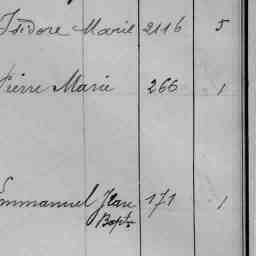 Isidore Marie 2116 5
Pierre Marie 266 1
Emmanuel Jean 171 1
Bapte